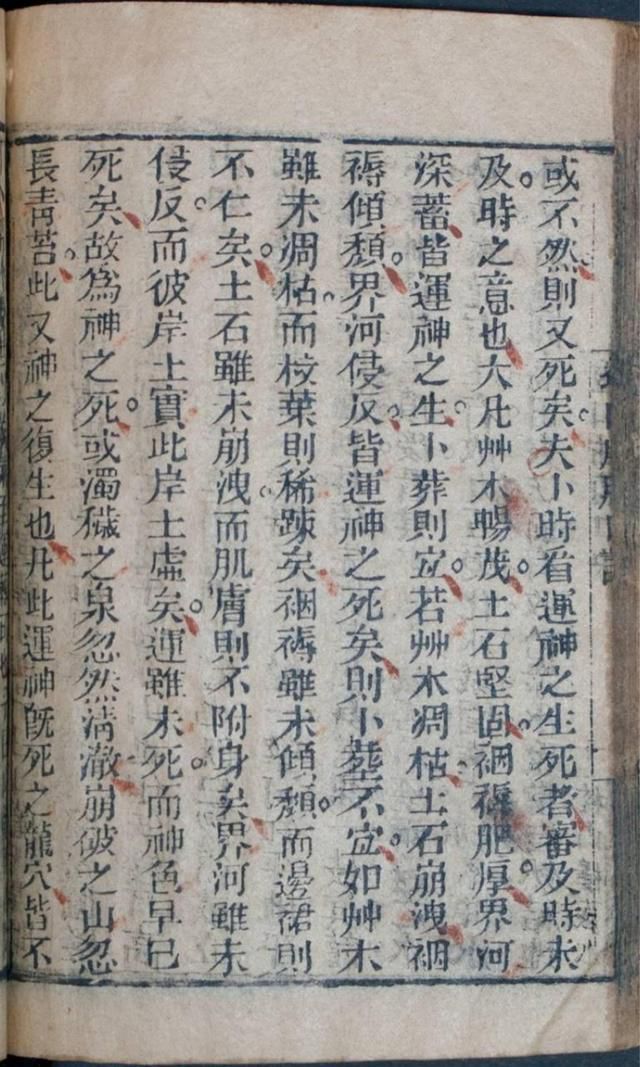 或不然則又死矣夫卜時看運神之生死者審及時未
及時之意也大凡艸木暢茂土石堅固裀褥肥厚界河
深蓄皆運神之生卜葬則宜若艸木凋枯土石崩洩裀
褥傾頽界河侵反皆運神之死矣則卜塟不宜如艸木
雖未凋枯而枝葉則稀踈矣裀褥雖未傾頽而邊裙則
不仁矣土石雖未崩洩而肌膚則不附身矣界河雖未
侵反而彼岸土實此岸土虛矣運雖未死而神色早已
死矣故爲神之死或濁穢之泉忽然清澈崩破之山忽
長青苔此又神之復生也凡此運神旣死之龍穴皆不